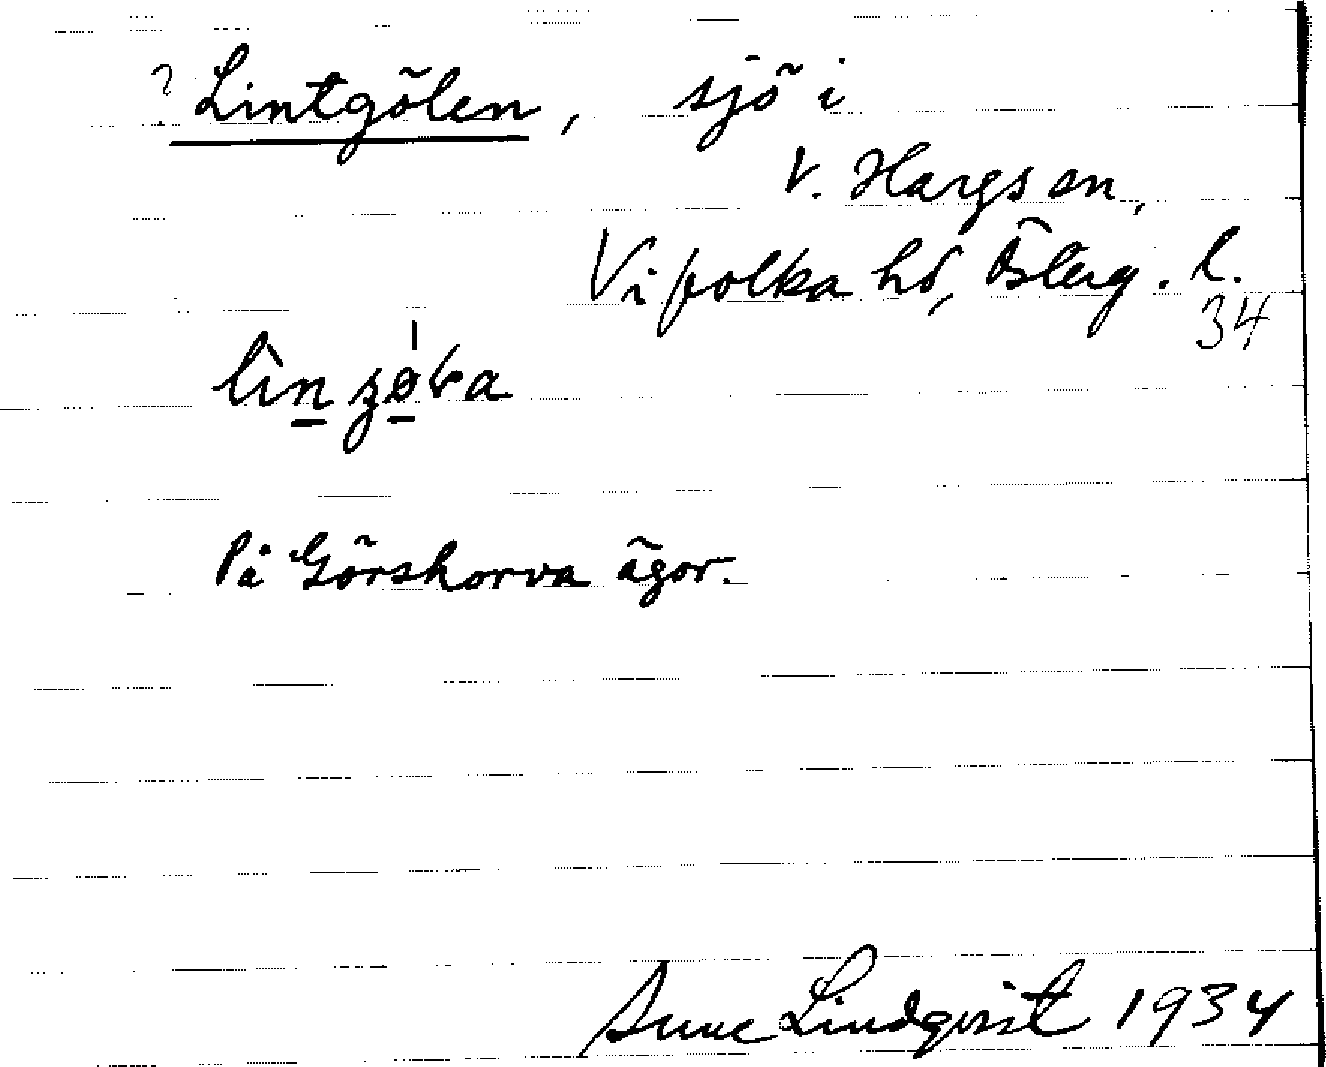 ? Lintgölen, sjö i
V. Hargs sn,
Vifolka hd, Österg. l.
34
På Görskorva ägor.
Sune Lindqvist 1934